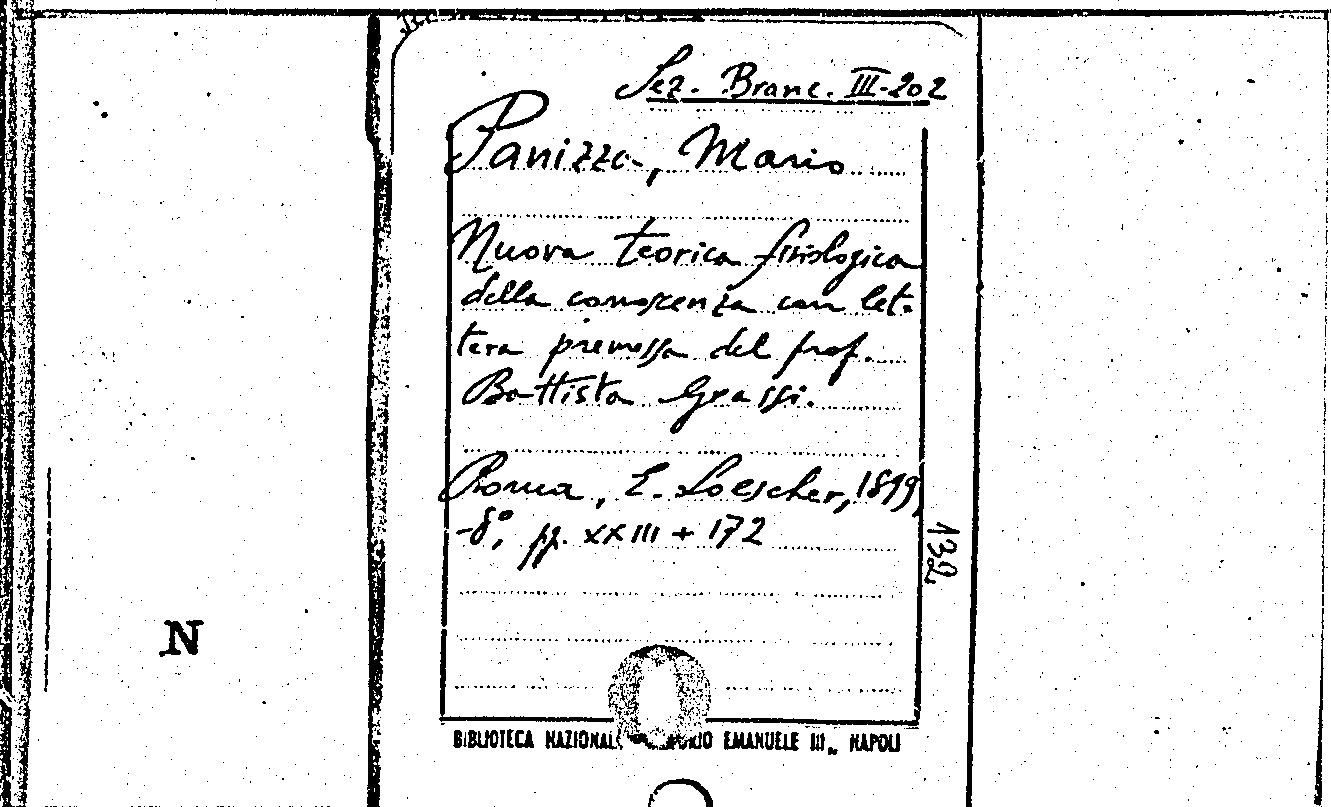 Sez. Branc. III-202
Panizza, Mario
Nuova teorica fisiologica
della conoscenza con let-
tera premessa del prof.
Battista Grassi.
Roma, E. Loescher, 1899,
-8°, pp. XXIII + 172
132
N
BIBLIOTECA NAZIONALE EMANUELE III„ NAPOLI